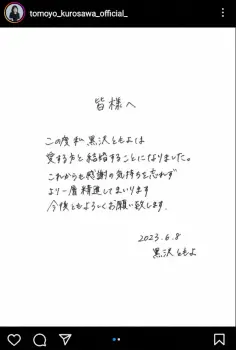 tomoyo_kurosawa_official_
皆様へ
この度 私 黒沢ともよは
愛する方と結婚することになりました。
これからも感謝の気持ちを忘れず
より一層精進してまいります
今後ともよろしくお願い致します.
2023.6.8
黒沢ともよ